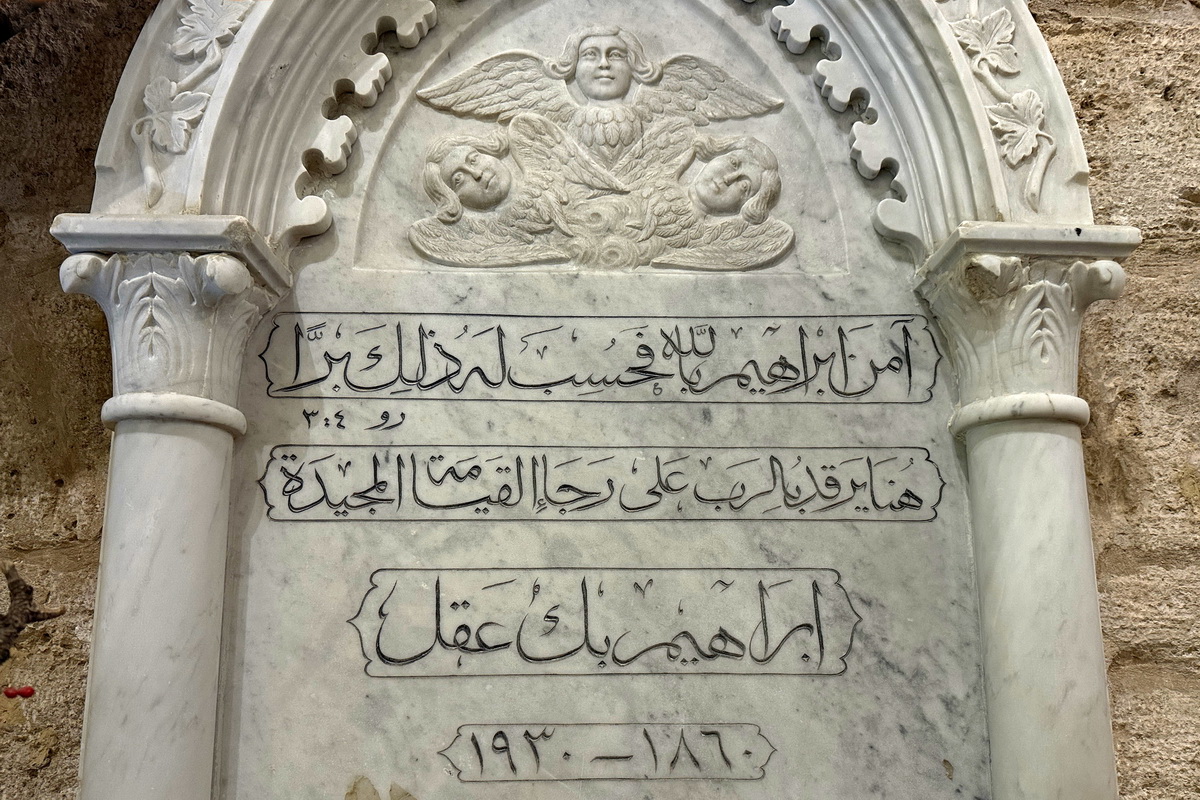 آمن ابراهيم بالله فحُسِب له ذلك برًّا
رو ٤:٣
هُنا يرقد بالرب على رجاءِ القيامة المجيدة
ابراهيم بك عقل
١٨٦٠ – ١٩٣٠